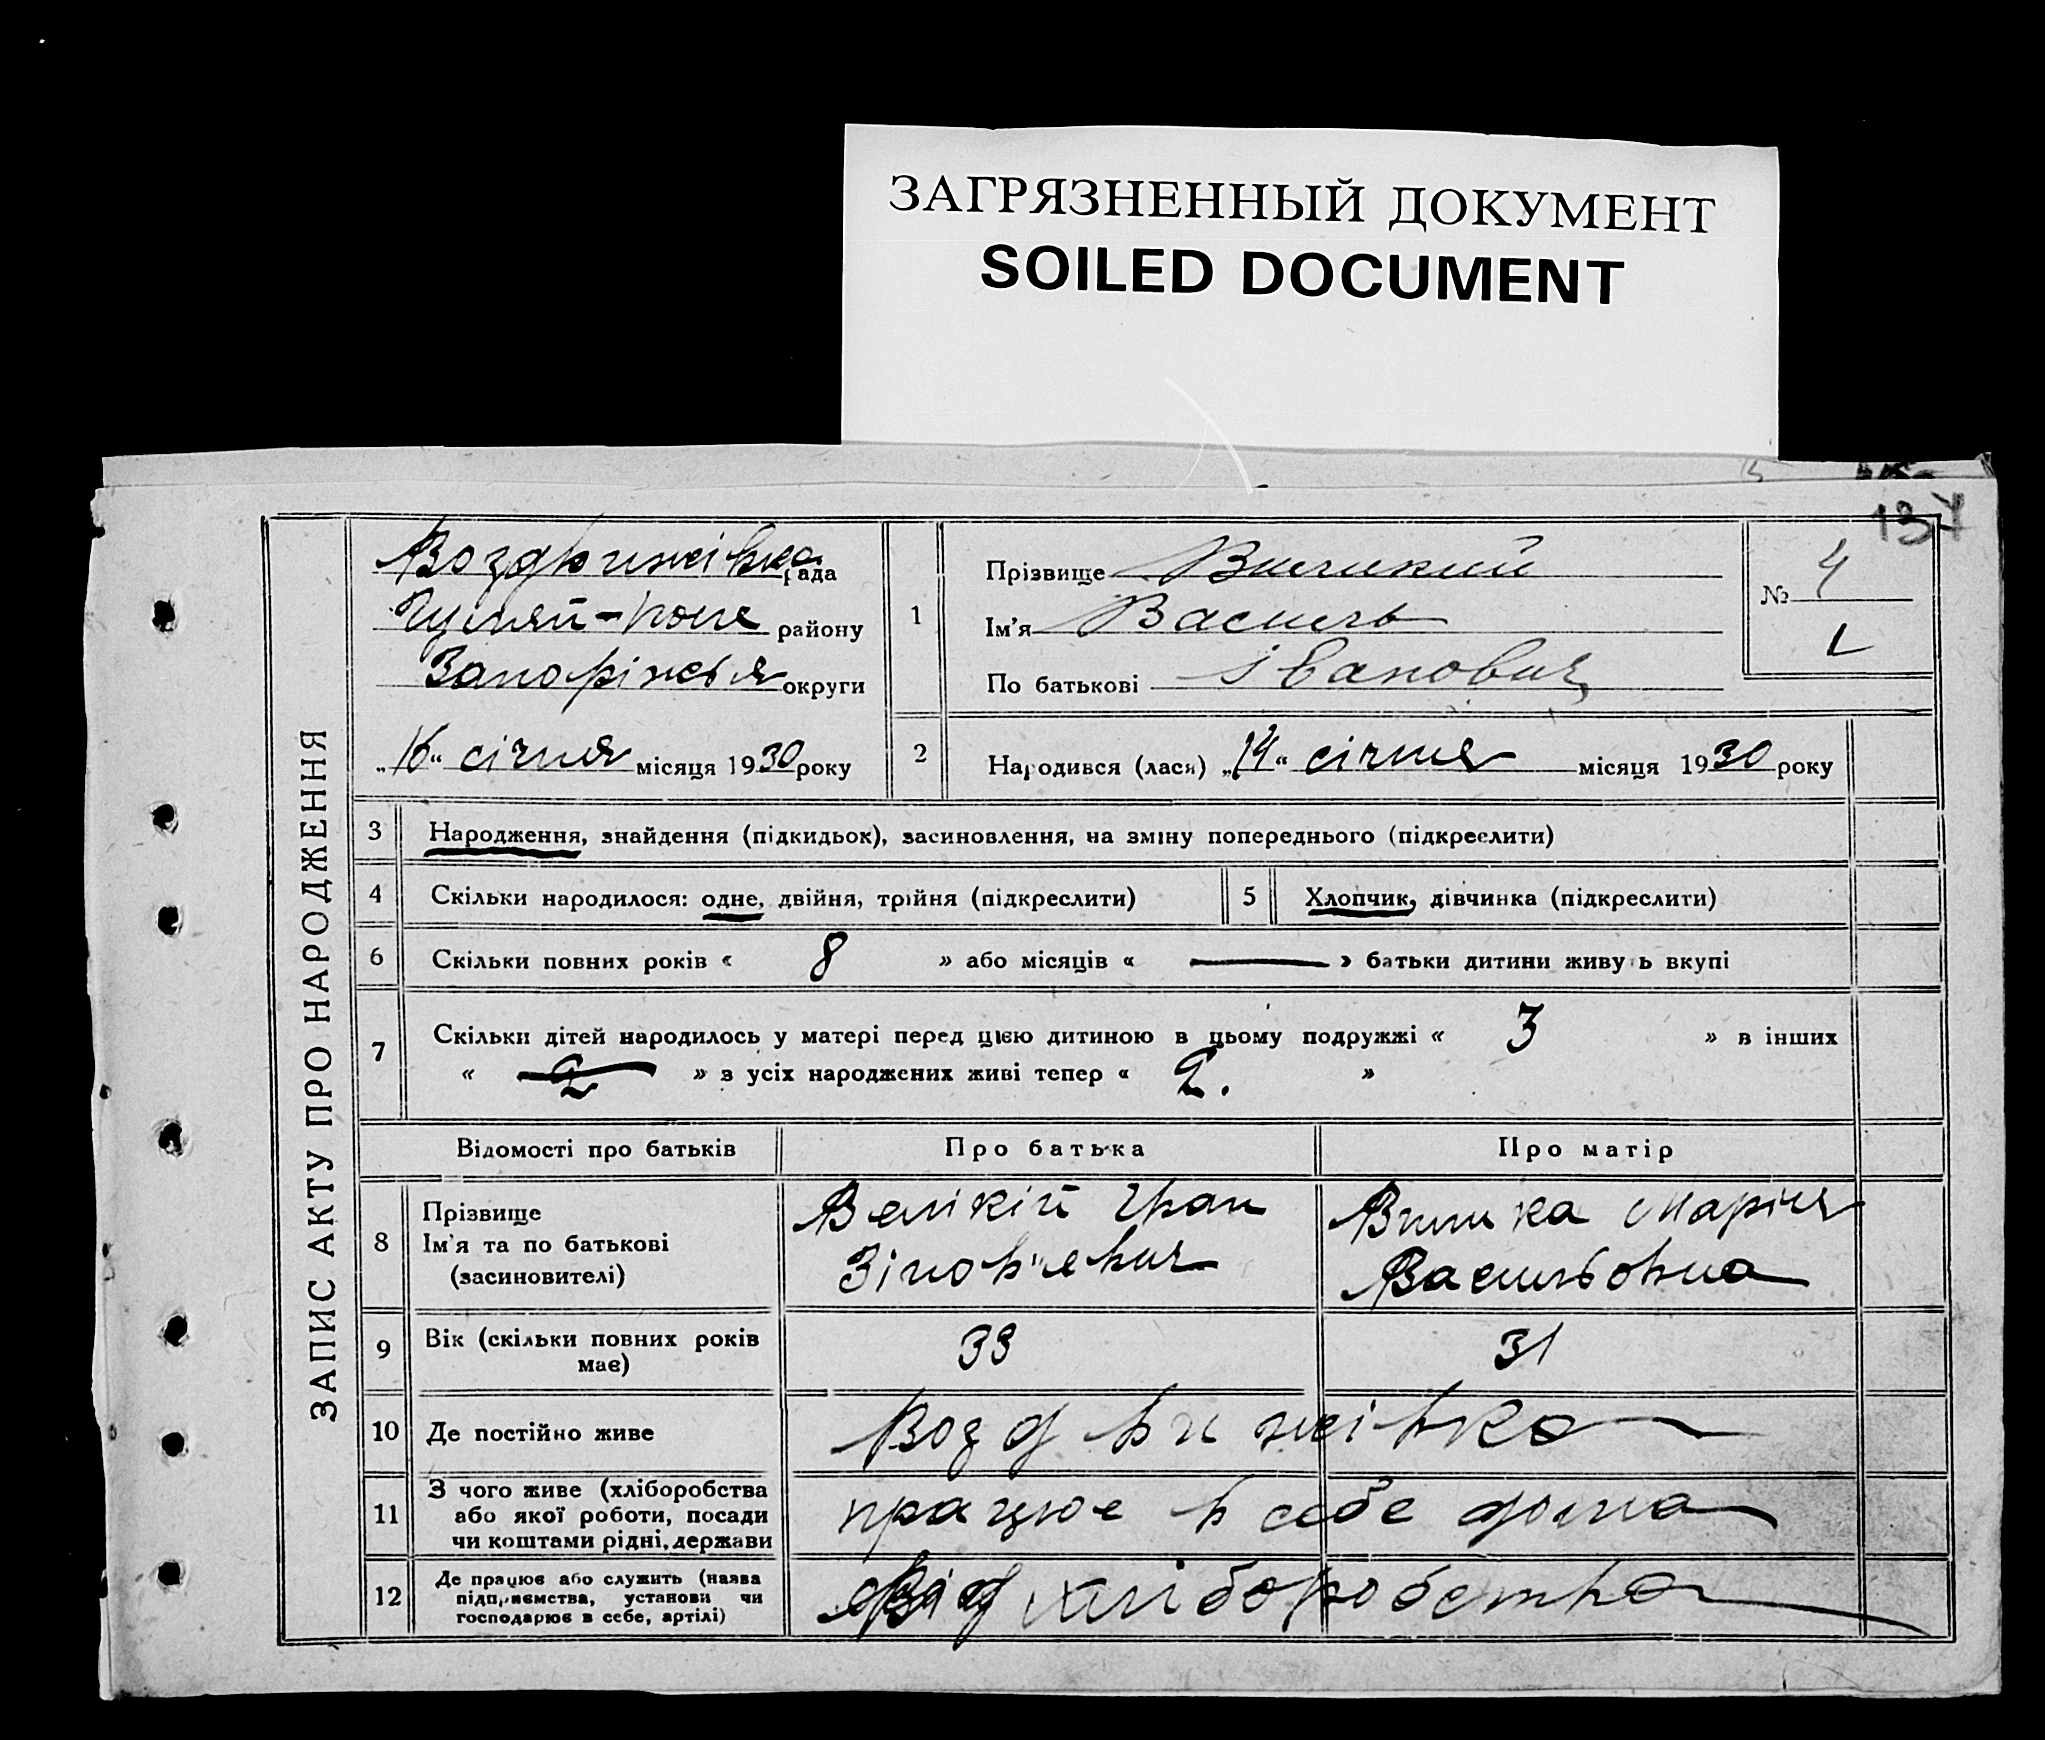 ЗАГРЯЗНЕННЫЙ ДОКУМЕНТ
SOILED DOCUMENT
137
ЗАПИС АКТУ ПРО НАРОДЖЕННЯ
Воздвижівка рада
Гуляй-Поле району
Запоріжья округи
„16“ січня місяця 1930 року
1
Прізвище
Ім'я Василь
По батькові Іванович
№ 4
2 Народився (лася) „14“ січня місяця 1930 року
3 Народження, знайдення (підкидьок), засиновлення, на зміну попереднього (підкреслити)
4 Скільки народилося: одне, двійня, трійня (підкреслити) 5 Хлопчик, дівчинка (підкреслити)
6 Скільки повних років « 8 » або місяців « — » батьки дитини живуть вкупі
7 Скільки дітей народилось у матері перед цією дитиною в цьому подружжі « 3 » в інших
« 2 » з усіх народжених живі тепер « 2. »
Відомості про батьків Про батька Про матір
8 Прізвище
Ім'я та по батькові
(засиновителі)
Велікій Іван
Зіновʼєвич
Марія
Васильовна
9 Вік (скільки повних років має) 33 31
10 Де постійно живе Воздвижівка
11 З чого живе (хліборобства
або якої роботи, посади
чи коштами рідні, держави
працює в себе дома
12 Де працює або служить (назва
підприємства, установи чи
господарює в себе, артілі)
від хліборобства